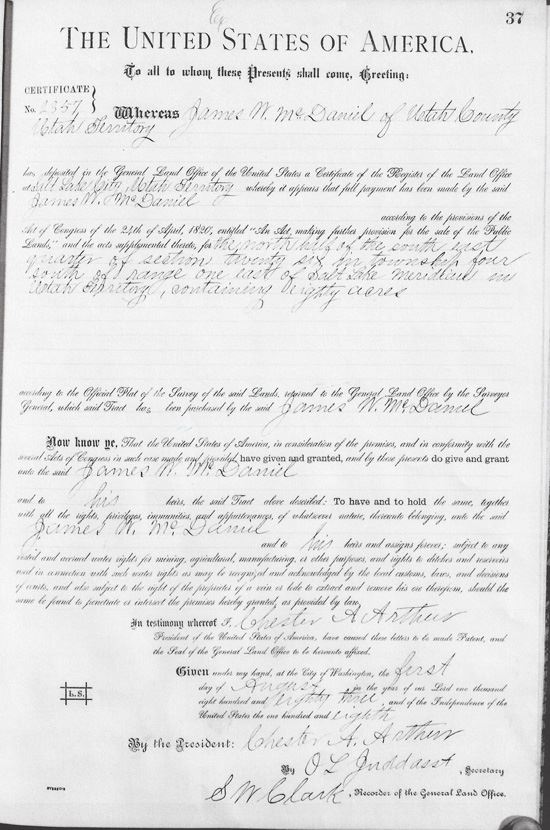 37
THE UNITED STATES OF AMERICA,
To all to whom these Presents shall come, Greeting:
CERTIFICATE
No. 2357
Whereas James W. McDaniel of Utah County
Utah Territory
has deposited in the General Land Office of the United States a Certificate of the Register of the Land Office
at Salt Lake City, Utah Territory whereby it appears that full payment has been made by the said
James W. McDaniel
according to the provisions of the
Act of Congress of the 24th of April, 1820, entitled "An Act, making further provision for the sale of the Public
Lands," and the acts supplemental thereto, for the north half of the south east
quarter of section twenty six in township four
south of range one east of Salt Lake Meridian in
Utah Territory, containing eighty acres
according to the Official Plat of the Survey of the said Lands, returned to the General Land Office by the Surveyor
General, which said Tract has been purchased by the said James W. McDaniel
Now know ye, That the United States of America, in consideration of the premises, and in conformity with the
several Acts of Congress in such case made and provided, have given and granted, and by these presents do give and grant
unto the said James W. McDaniel
and to his heirs, the said Tract above described: To have and to hold the same, together
with all the rights, privileges, immunities, and appurtenances, of whatsoever nature, thereunto belonging, unto the said
James W. McDaniel
and to his heirs and assigns forever; subject to any
vested and accrued water rights for mining, agricultural, manufacturing, or other purposes, and rights to ditches and reservoirs
used in connection with such water rights as may be recognized and acknowledged by the local customs, laws, and decisions
of courts, and also subject to the right of the proprietor of a vein or lode to extract and remove his ore therefrom, should the
same be found to penetrate or intersect the premises hereby granted, as provided by law.
In testimony whereof I, Chester A Arthur
President of the United States of America, have caused these letters to be made Patent, and
the Seal of the General Land Office to be hereunto affixed.
Given under my hand, at the City of Washington, the first
day of August in the year of our Lord one thousand
eight hundred and eighty three, and of the Independence of the
United States the one hundred and eighth
L.S.
By the President: Chester A. Arthur
By
, Secretary
S W Clark, Recorder of the General Land Office.